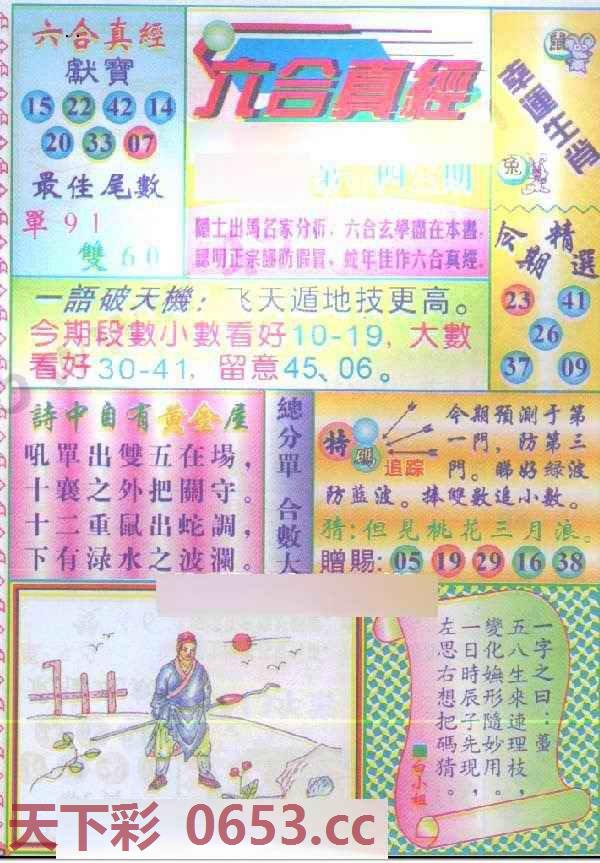 六合真經
獻寶
15 22 42 14
20 33 07
最佳尾數
單 91
雙 60
六合真經
期
隱士出馬名家分析，六合玄學盡在本書，
認明正宗謹防假冒，蛇年佳作六合真經。
鼠
幸運生肖
兔
今期精選
23 41
26
37 09
一語破天機：飞天遁地技更高。
今期段數小數看好10-19，大數
看好30-41，留意45、06。
詩中自有黃金屋
吼單出雙五在場，
十襄之外把關守。
十二重鼠出蛇調，
下有渌水之波瀾。
總分單 合數大
特碼
追踪
今期預測于第
一門，防第三
門。睇好綠波
防蓝波。捧雙數追小數。
猜：但見桃花三月浪。
贈賜：05 19 29 16 38
一字之曰：
五八生來連理枝，
變化嫵形隨妙用。
一日時辰子先現，
左思右想把碼猜。
白小姐
天下彩 0653.cc